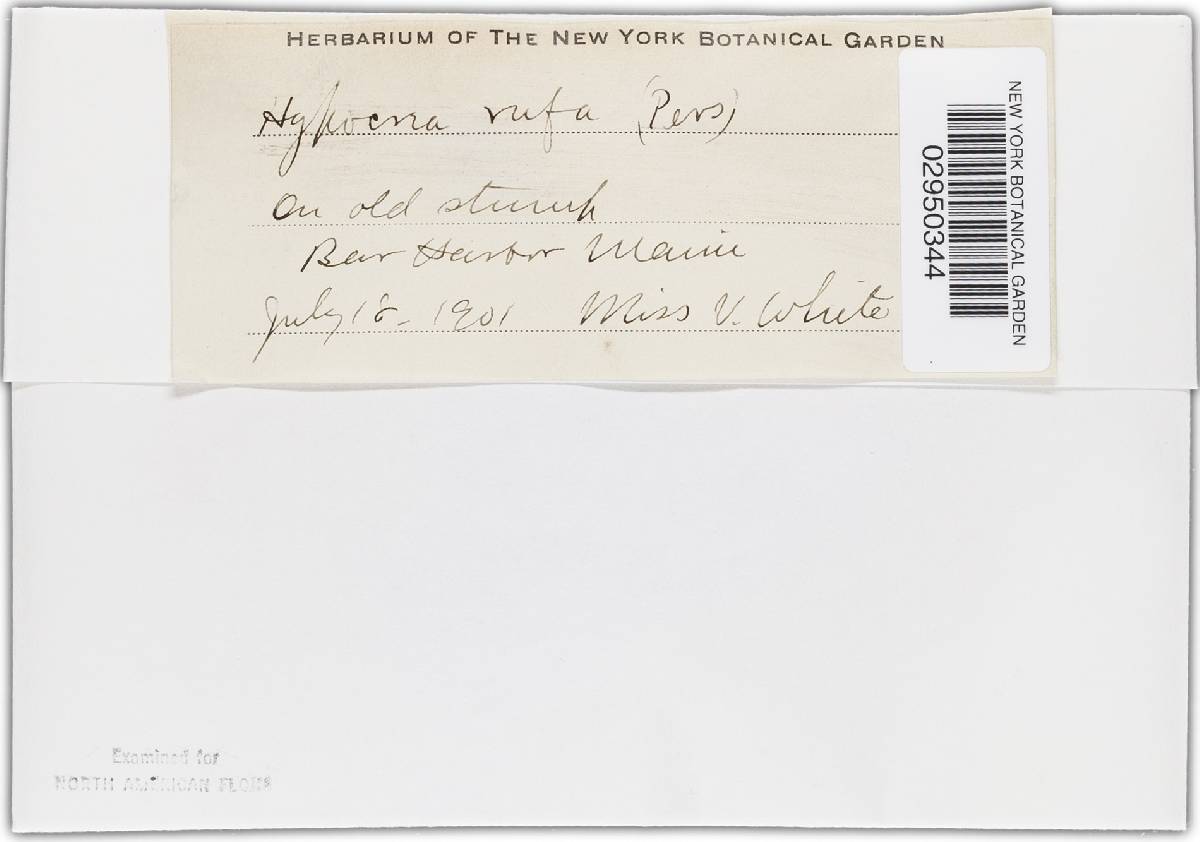 HERBARIUM OF THE NEW YORK BOTANICAL GARDEN
Hypocrea rufa (Pers)
On old stump
Bar Harbor Maine
July 18 - 1901 Miss V. White
NEW YORK BOTANICAL GARDEN
02950344
Examined for
NORTH AMERICAN FLORA